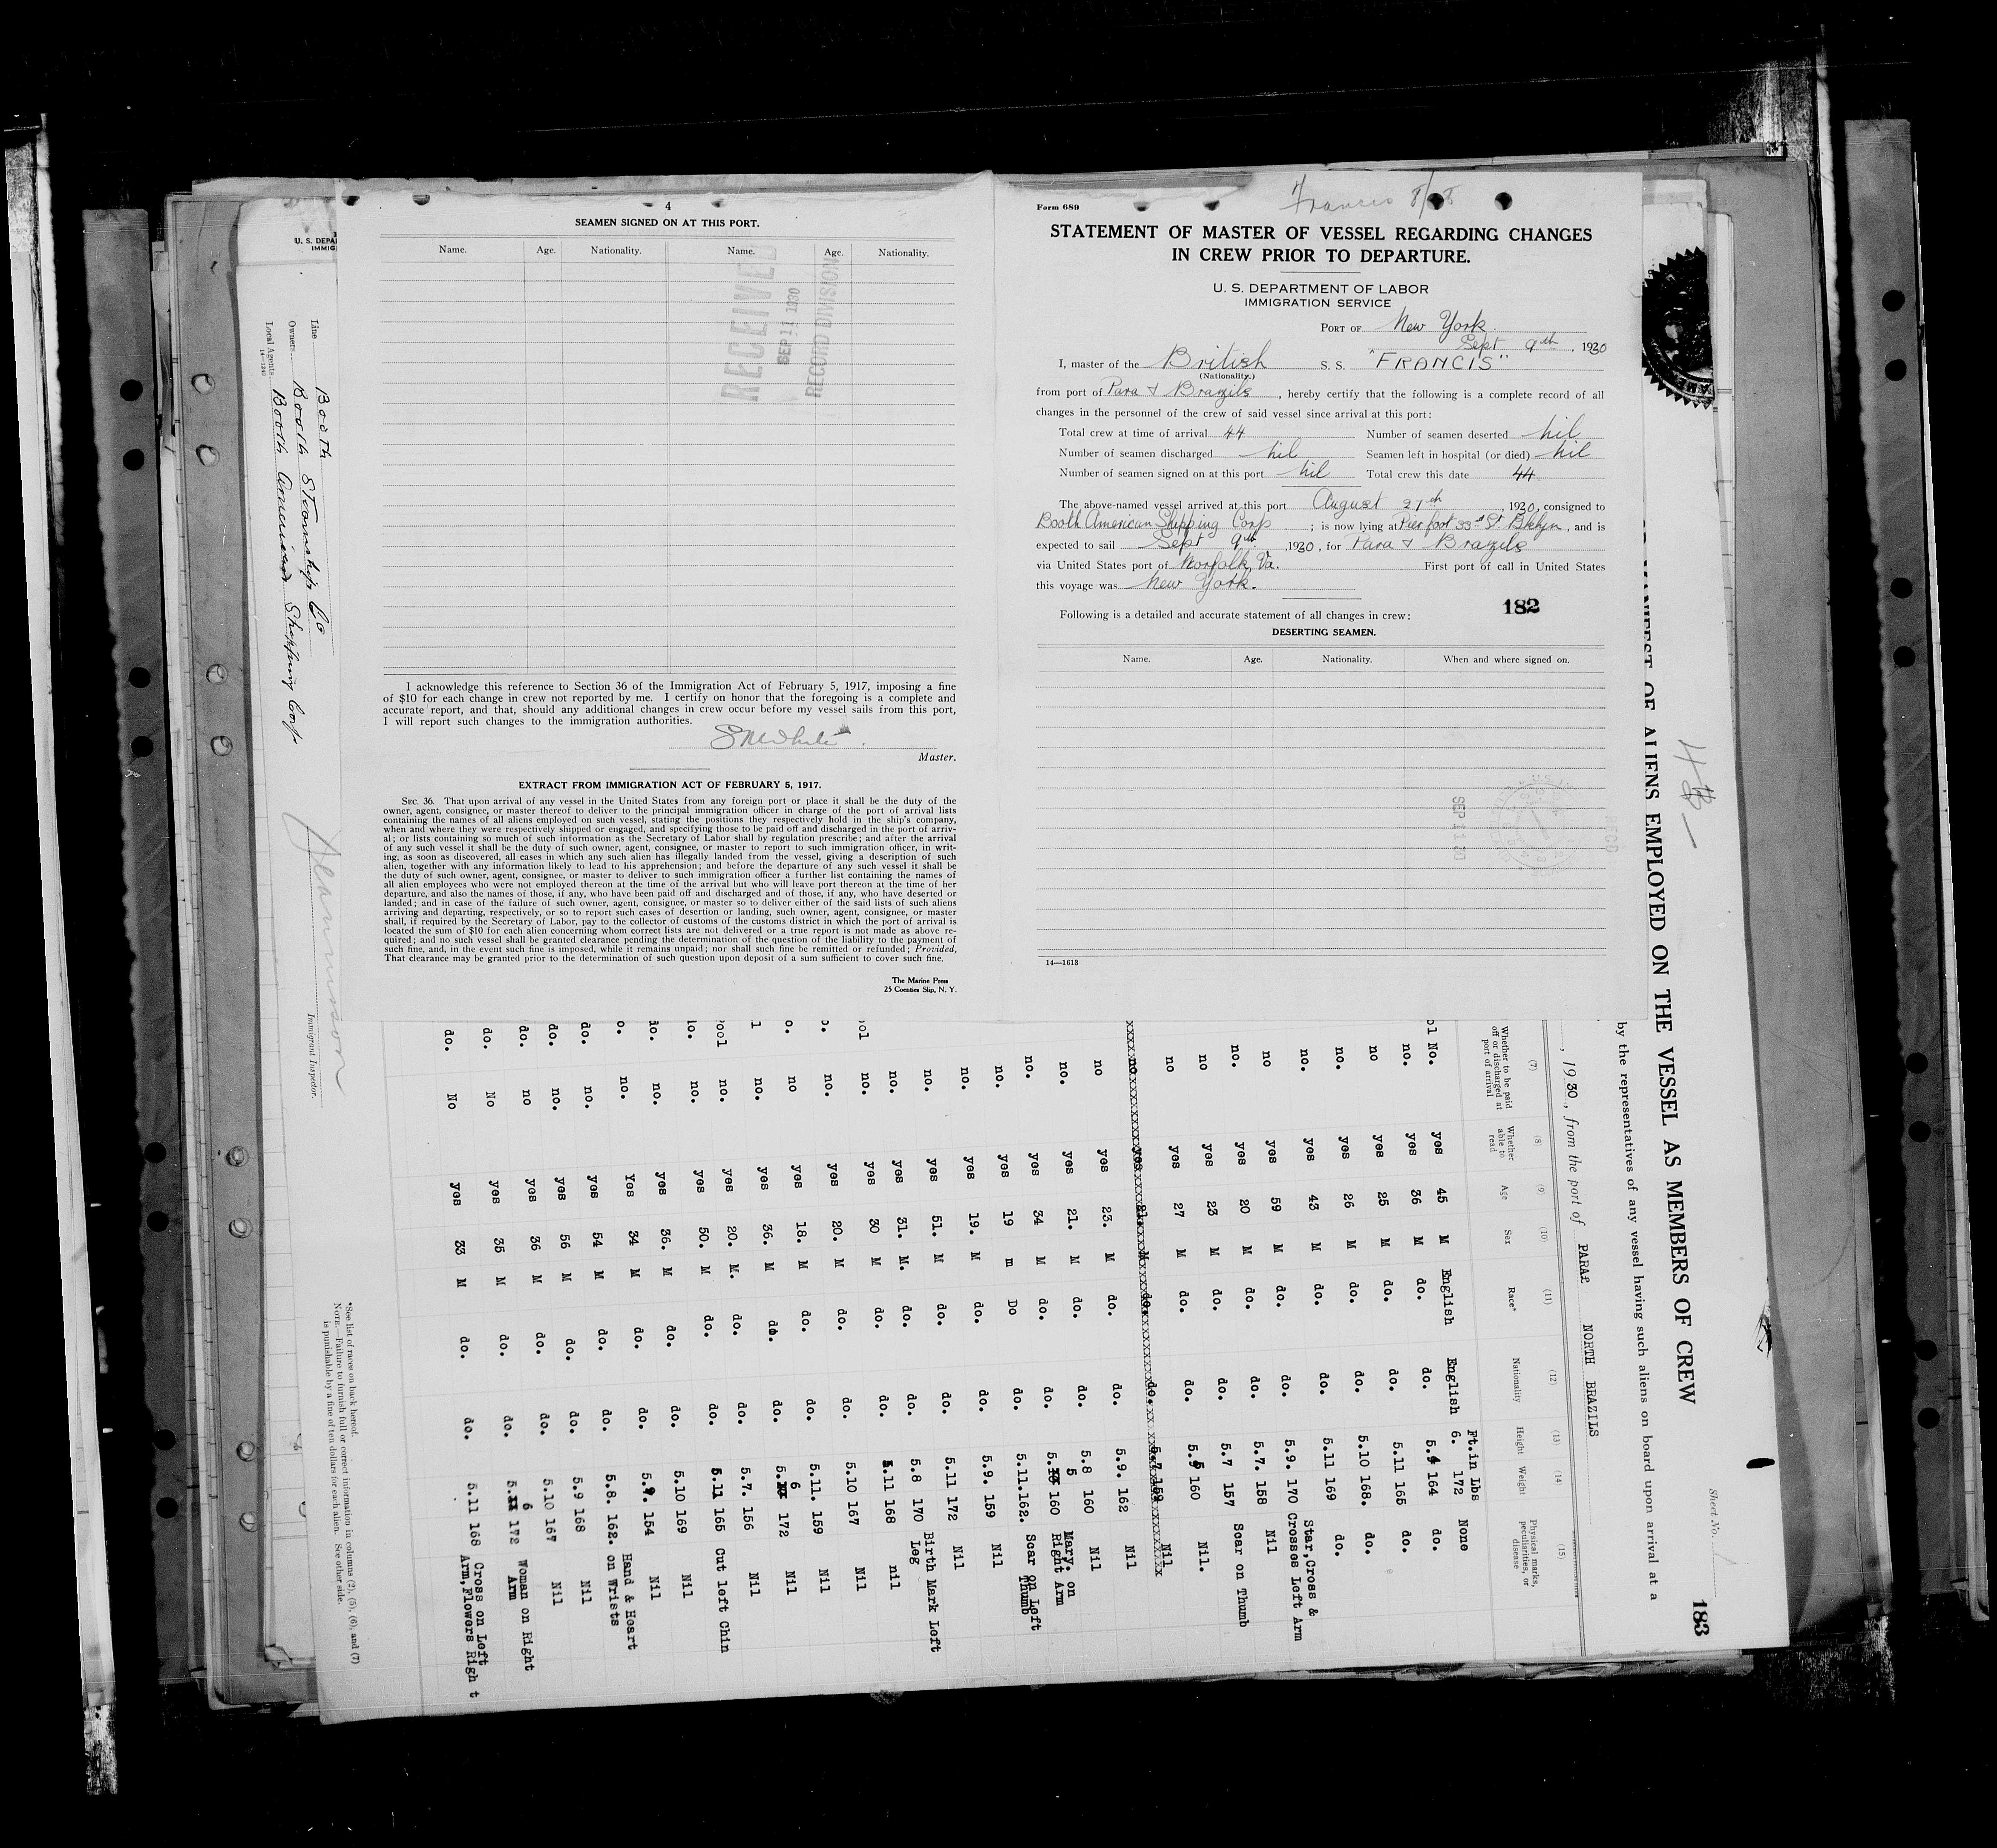 4
SEAMEN SIGNED ON AT THIS PORT.
Name. Age. Nationality. Name. Age. Nationality.
RECEIVED
SEP 11 1930
RECORD DIVISION
I acknowledge this reference to Section 36 of the Immigration Act of February 5, 1917, imposing a fine
of $10 for each change in crew not reported by me. I certify on honor that the foregoing is a complete and
accurate report, and that, should any additional changes in crew occur before my vessel sails from this port,
I will report such changes to the immigration authorities.
Master.
EXTRACT FROM IMMIGRATION ACT OF FEBRUARY 5, 1917.
SEC. 36. That upon arrival of any vessel in the United States from any foreign port or place it shall be the duty of the
owner, agent, consignee, or master thereof to deliver to the principal immigration officer in charge of the port of arrival lists
containing the names of all aliens employed on such vessel, stating the positions they respectively hold in the ship's company,
when and where they were respectively shipped or engaged, and specifying those to be paid off and discharged in the port of arriv-
al; or lists containing so much of such information as the Secretary of Labor shall by regulation prescribe; and after the arrival
of any such vessel it shall be the duty of such owner, agent, consignee, or master to report to such immigration officer, in writ-
ing, as soon as discovered, all cases in which any such alien has illegally landed from the vessel, giving a description of such
alien, together with any information likely to lead to his apprehension; and before the departure of any such vessel it shall be
the duty of such owner, agent, consignee, or master to deliver to such immigration officer a further list containing the names of
all alien employees who were not employed thereon at the time of the arrival but who will leave port thereon at the time of her
departure, and also the names of those, if any, who have been paid off and discharged and of those, if any, who have deserted or
landed; and in case of the failure of such owner, agent, consignee, or master so to deliver either of the said lists of such aliens
arriving and departing, respectively, or so to report such cases of desertion or landing, such owner, agent, consignee, or master
shall, if required by the Secretary of Labor, pay to the collector of customs of the customs district in which the port of arrival is
located the sum of $10 for each alien concerning whom correct lists are not delivered or a true report is not made as above re-
quired; and no such vessel shall be granted clearance pending the determination of the question of the liability to the payment of
such fine, and, in the event such fine is imposed, while it remains unpaid; nor shall such fine be remitted or refunded; Provided,
That clearance may be granted prior to the determination of such question upon deposit of a sum sufficient to cover such fine.
The Marine Press
25 Coenties Slip, N. Y.
Francis 8/28
Form 689
STATEMENT OF MASTER OF VESSEL REGARDING CHANGES
IN CREW PRIOR TO DEPARTURE.
U. S. DEPARTMENT OF LABOR
IMMIGRATION SERVICE
PORT OF New York
Sept 9th, 1930
I, master of the British S. S. "FRANCIS"
(Nationality.)
from port of Para & Brazils, hereby certify that the following is a complete record of all
changes in the personnel of the crew of said vessel since arrival at this port:
Total crew at time of arrival 44 Number of seamen deserted nil
Number of seamen discharged nil Seamen left in hospital (or died) nil
Number of seamen signed on at this port nil Total crew this date 44
The above-named vessel arrived at this port August 27th, 1930, consigned to
Booth American Shipping Corp; is now lying at Pier foot 33rd St. Bklyn, and is
expected to sail Sept 9th, 1930, for Para & Brazils
via United States port of Norfolk, Va. First port of call in United States
this voyage was New York.
182
Following is a detailed and accurate statement of all changes in crew:
DESERTING SEAMEN.
Name. Age. Nationality. When and where signed on.
SEP 11 30
14—1613
U. S. DEPA
IMMIG
Line Booth
Owners Booth Steamship Co
Local Agents Booth American Shipping Corp
14—1240
Immigrant Inspector.
Sheet No.
183
MANIFEST OF ALIENS EMPLOYED ON THE VESSEL AS MEMBERS OF CREW
by the representatives of any vessel having such aliens on board upon arrival at a
, 1930, from the port of PARA& NORTH BRAZILS
(7) (8) (9) (10) (11) (12) (13) (14) (15)
Whether to be paid off or discharged at port of arrival Whether able to read Age Sex Race* Nationality Height Weight Physical marks, peculiarities, or disease
Ft.in Lbs
ol No. yes 45 M English English 6. 172 None
no. yes 36 M do. do. 5.4 164 do.
no yes 25 M do. do. 5.11 165 do.
no. yes 26 M do. do. 5.10 168. do.
no. yes 43 M do. do. 5.11 169 do.
no yes 59 M do. do. 5.9. 170 Star,Cross & Crosses Left Arm
no. yes 20 M do. do. 5.7. 158 Nil
no yes 23 M do. do. 5.7 157 Scar on Thumb
no yes 27 M do. do. 5.5 160 Nil.
no yes 21. M do. do. 5.7 159 Nil
no yes 23. M do. do. 5.9. 162 Nil
no. yes 21. M do. do. 5.8 160 Nil
no. yes 34 M do. do. 5.5 160 Mary. on Right Arm
no. yes 19 m Do do. 5.11.162. Scar on Left Thumb
no. yes 19. M do. do. 5.9. 159 Nil
no. yes 51. M do. do. 5.11 172 Nil
no. yes 31. M. do. do. 5.8 170 Birth Mark Left Leg
ool no. yes 30 M do. do. 5.11 168 nil
o. no. yes 20. M do. do. 5.10 167 Nil
o. no yes 18. M do. do. 5.11. 159 Nil
l no. yes 36. M do. do. 5.6 172 Nil
ool no. yes 20. M. do. do. 5.7. 156 Nil
lo. no. yes 50. M do. do. 5.11 165 Cut left Chin
do. no. yes 36. M do. do. 5.10 169 Nil
o. no. Yes 34 M do. do. 5.9. 154 Nil
do. no. yes 54 M do. do. 5.8. 162. Hand & Heart on Wrists
do. no. yes 56 M do. do. 5.9 168 Nil
do. no yes 36 M do. do. 5.10 167 Nil
do. No yes 35 M do. do. 5.6 172 Woman on Right Arm
do. No yes 33 M do. do. 5.11 168 Cross on Left Arm,Flowers Righ t
*See list of races on back hereof.
NOTE.—Failure to furnish full or correct information in columns (2), (5), (6), and (7)
is punishable by a fine of ten dollars for each alien. See other side.